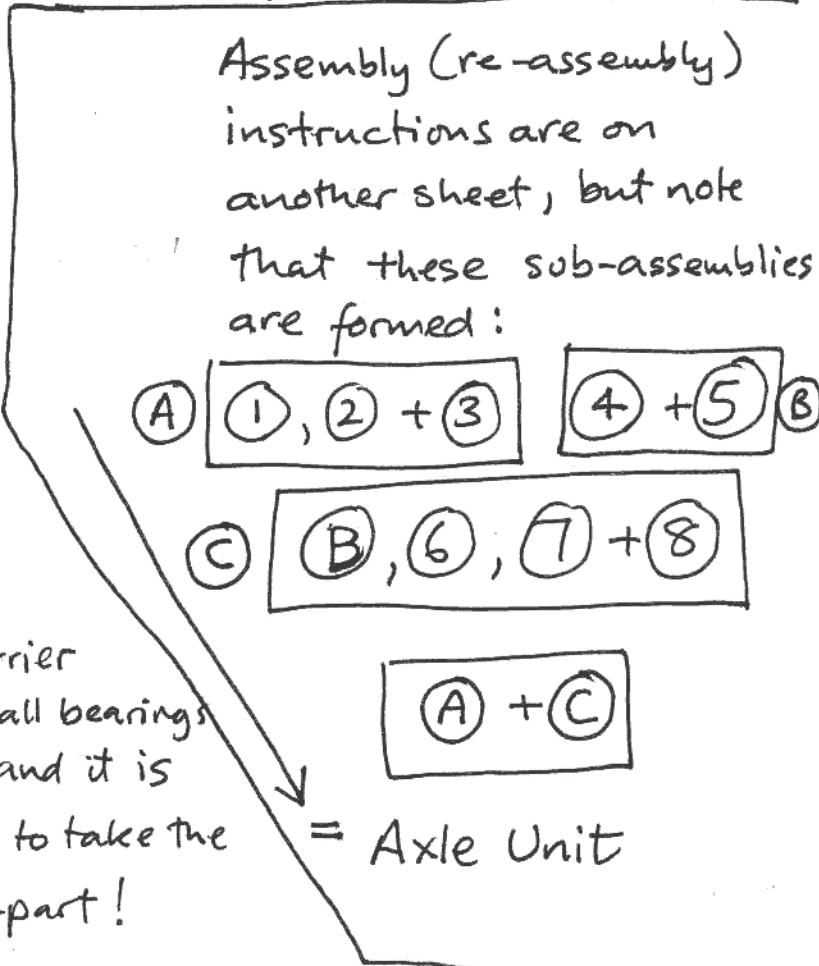 Assembly (re-assembly)
instructions are on
another sheet, but note
that these sub-assemblies
are formed:
Ⓐ ①, ② + ③ ④ + ⑤ Ⓑ
Ⓒ Ⓑ, ⑥, ⑦ + ⑧
Ⓐ + Ⓒ
= Axle Unit
rrier
all bearings
and it is
to take the
-part!